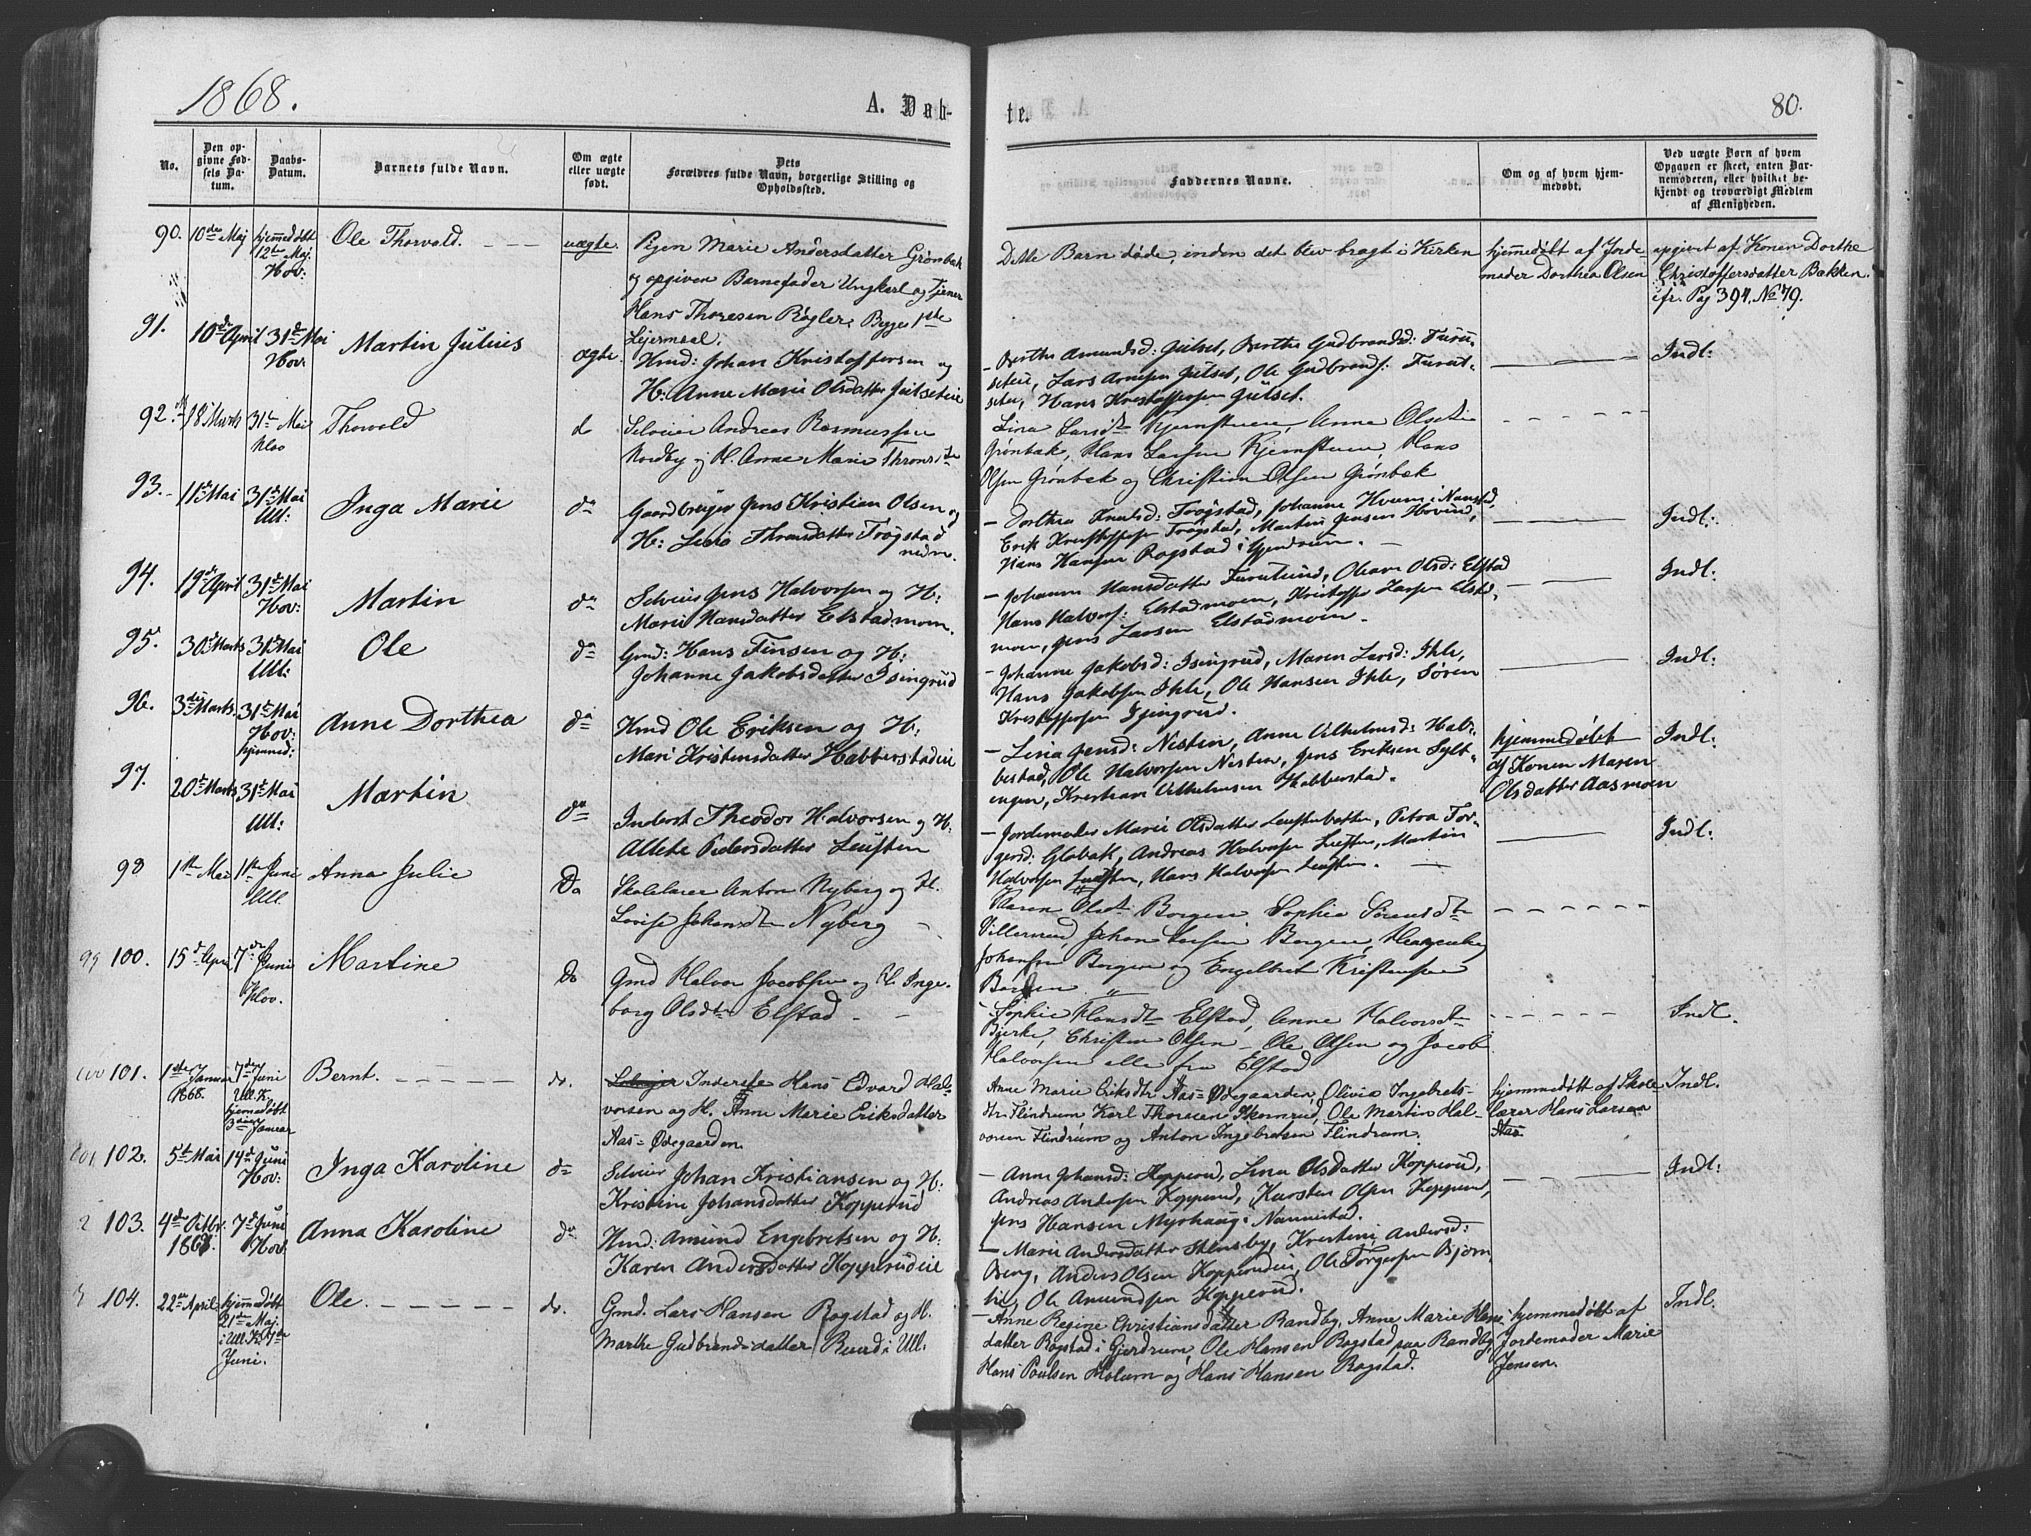 1868.
A. Døb-
te.
80.
No.
Den op-
givne Fød-
sels Da-
tum.
Daabs-
Datum.
Barnets fulde Navn.
Om ægte
eller uægte
født.
Dets
Forældres fulde Navn, borgerlige Stilling og
Opholdssted.
Faddernes Navne.
Om og af hvem hjem-
medøbt.
Ved uægte Børn af hvem
Opgaven er skeet, enten Bar-
nemoderen, eller hvilket be-
kjendt og troværdigt Medlem
af Menigheden.
90.
10de Maj
hjemmedøbt
12te Maj.
Hov:
Ole Thorvald.
uægte.
Pigen Marie Andersdatter Grønbak
og opgiven Barnefader Ungkarl og Tjener
Hans Thoresen Røgler. Begges 1ste
Lejermaal.
Dette Barn døde, inden det blev bragt i Kirken
hjemmedøbt af Jorde-
moder Dorthea Olsen
opgivet af Konen Dorthe
Christoffersdatter Bakken.
cfr. Pag 394. No 79.
91.
10de April
31te Mai
Hov.
Martin Julius
ægte.
Hmd: Johan Kristoffersen og
H: Anne Marie Olsdatter Gulseteie
Berthe Amundsd: Gulset, Berthe Gudbrandsd: Furu-
seteie, Lars Arnesen Gulset, Ole Gudbrands: Furut-
seter, Hans Kristoffersen Gulset.
Indl:
92.
18 Marts
31te Mai
Hov
Thorvald
do
Selveier Andreas Rasmussen
Nordby og H. Anne Marie Thronsdt
Lina Larsdt Kjernstuen, Anne Olsdt
Grønbæk, Hans Larsen Kjernstuen, Hans
Olsen Grønbæk og Christian Olsen Grønbæk
93.
11te Mai
31te Mai
Ull:
Inga Marie
do
Gaardbruger Jens Kristian Olsen og
H: Thronsdatter Trøgstad
nedre.
Dorthea Knutsd: Trøgstad, Johanne Hvam i Nanstad,
Erik Kristoffersen Trøgstad, Martin Jensen Hovind,
Hans Hansen Rogstad i Gjerdrum.
Indl:
94.
19de April
31te Mai
Hov:
Martin
do
Selveier Jens Halvorsen og H:
Marie Hansdatter Elstadmoen.
Johanne Hansdatter Furulund, Oleane Olsd: Elstad
Hans Halvors: Elstadmoen, Kristoffer Larsen Elstad-
moen, Jens Larsen Elstadmoen.
Indl:
95.
30te Marts
31te Mai
Ull:
Ole
do
Gmd: Hans Finsen og H:
Johanne Jakobsdatter Isingrud
Johanne Jakobsd: Isingrud, Maren Larsd: Ihle,
Hans Jakobsen Ihle, Ole Hansen Ihle, Søren
Kristoffersen Isingrud.
Indl:
96.
3die Marts.
31te Mai
Hov:
hjemmed:
Anne Dorthea
do
Hmd Ole Eriksen og H:
Mari Kristensdatter Habberstadeie
Lina Jensd: Nesten, Anne Vilhelmsd: Hab-
berstad, Ole Halvorsen Nesten, Jens Eriksen Sylt-
engen, Kristian Vilhelmsen Habberstad.
hjemmedøbt
af Konen Maren
Olsdatter Aasmoen
Indl:
97.
20te Marts
31te Mai
Ull:
Martin
do
Inderst Theodor Halvorsen og H:
Allete Pedersdatter Leifsten
Jordemoder Marie Olsdatter, Petra Tor-
gersd: Globak, Andreas Halvorsen, Martin
Halvorsen, Hans Halvorsen
Indl:
98
1ste Mai
1ste Juni
Ull
Anna Julie
Do
Skolelærer Anton Nyberg og H.
Lovise Johansdt Nyberg
Karen Olsdt Borgen, Sophie Sørensdt
Villerud Johan Larsen Borgen,
Johansen Borgen og Engelbret Kristensen
Borgen
99 100.
15de April
7de Juni
Hov.
Martine
Do
Gmd Halvor Jacobsen og H. Inge-
borg Olsdtr Elstad
Sophie Hansdt Elstad, Anne Halvorsdt
Bjerke, Christen Olsen - Ole Olsen og Jacob
Halvorsen alle fra Elstad
Indl.
100 101.
1ste Januar
1868.
7de Juni
Ull K.
hjemmedøbt
3die Januar
Bernt.
do.
Inderste Hans Edvard Hal-
vorsen og H. Anne Marie Eriksdatter
Aas-Ødegaarden
Anne Marie Eriksdtr Aas-Ødegaarden, Olivia Ingebrets-
dtr. Flindrum Karl Thoresen Skomrud, Ole Martin Hal-
vorsen Flindrum og Anton Ingebretsen Flindrum.
hjemmedøbt af Skole-
lærer Hans Larsen
Aas
Indl.
101 102.
5te Mai
14de Juni
Hov:
Inga Karoline
do
Selveier Johan Kristiansen og H:
Kristine Johansdatter Kopperud
Anne Johansd: Kopperud, Lina Olsdatter Kopperud,
Andreas Andersen Kopperud, Karsten Olsen Kopperud,
Jens Hansen Myrhaug i Nannestad.
Indl:
2 103.
4de Octbr.
1867.
7de Juni
Hov.
Anna Karoline
do
Hmd: Amund Engebretsen og H:
Karen Andersdatter Kopperudeie
Marie Andersdatter Stensby, Kristine Andersd:
Berg, Anders Olsen Kopperudeie, Ole Torgersen Bjørn-
lie, Ole Amundsen Kopperud.
104.
22de April
hjemmedøbt
21de Maj.
i Ull K 7de
Juni.
Ole.
do.
Gmd. Lars Hansen Rogstad og H.
Marthe Gudbrandsdatter Ruud i Ull.
Anne Regine Christiansdatter Randby, Anne Marie Hans-
datter Rogstad i Gjerdrum, Ole Hansen Rogstad paa Randby,
Hans Poulsen Holum og Hans Hansen Rogstad.
hjemmedøbt af
Jordemoder Marie
Jensen.
Indl.